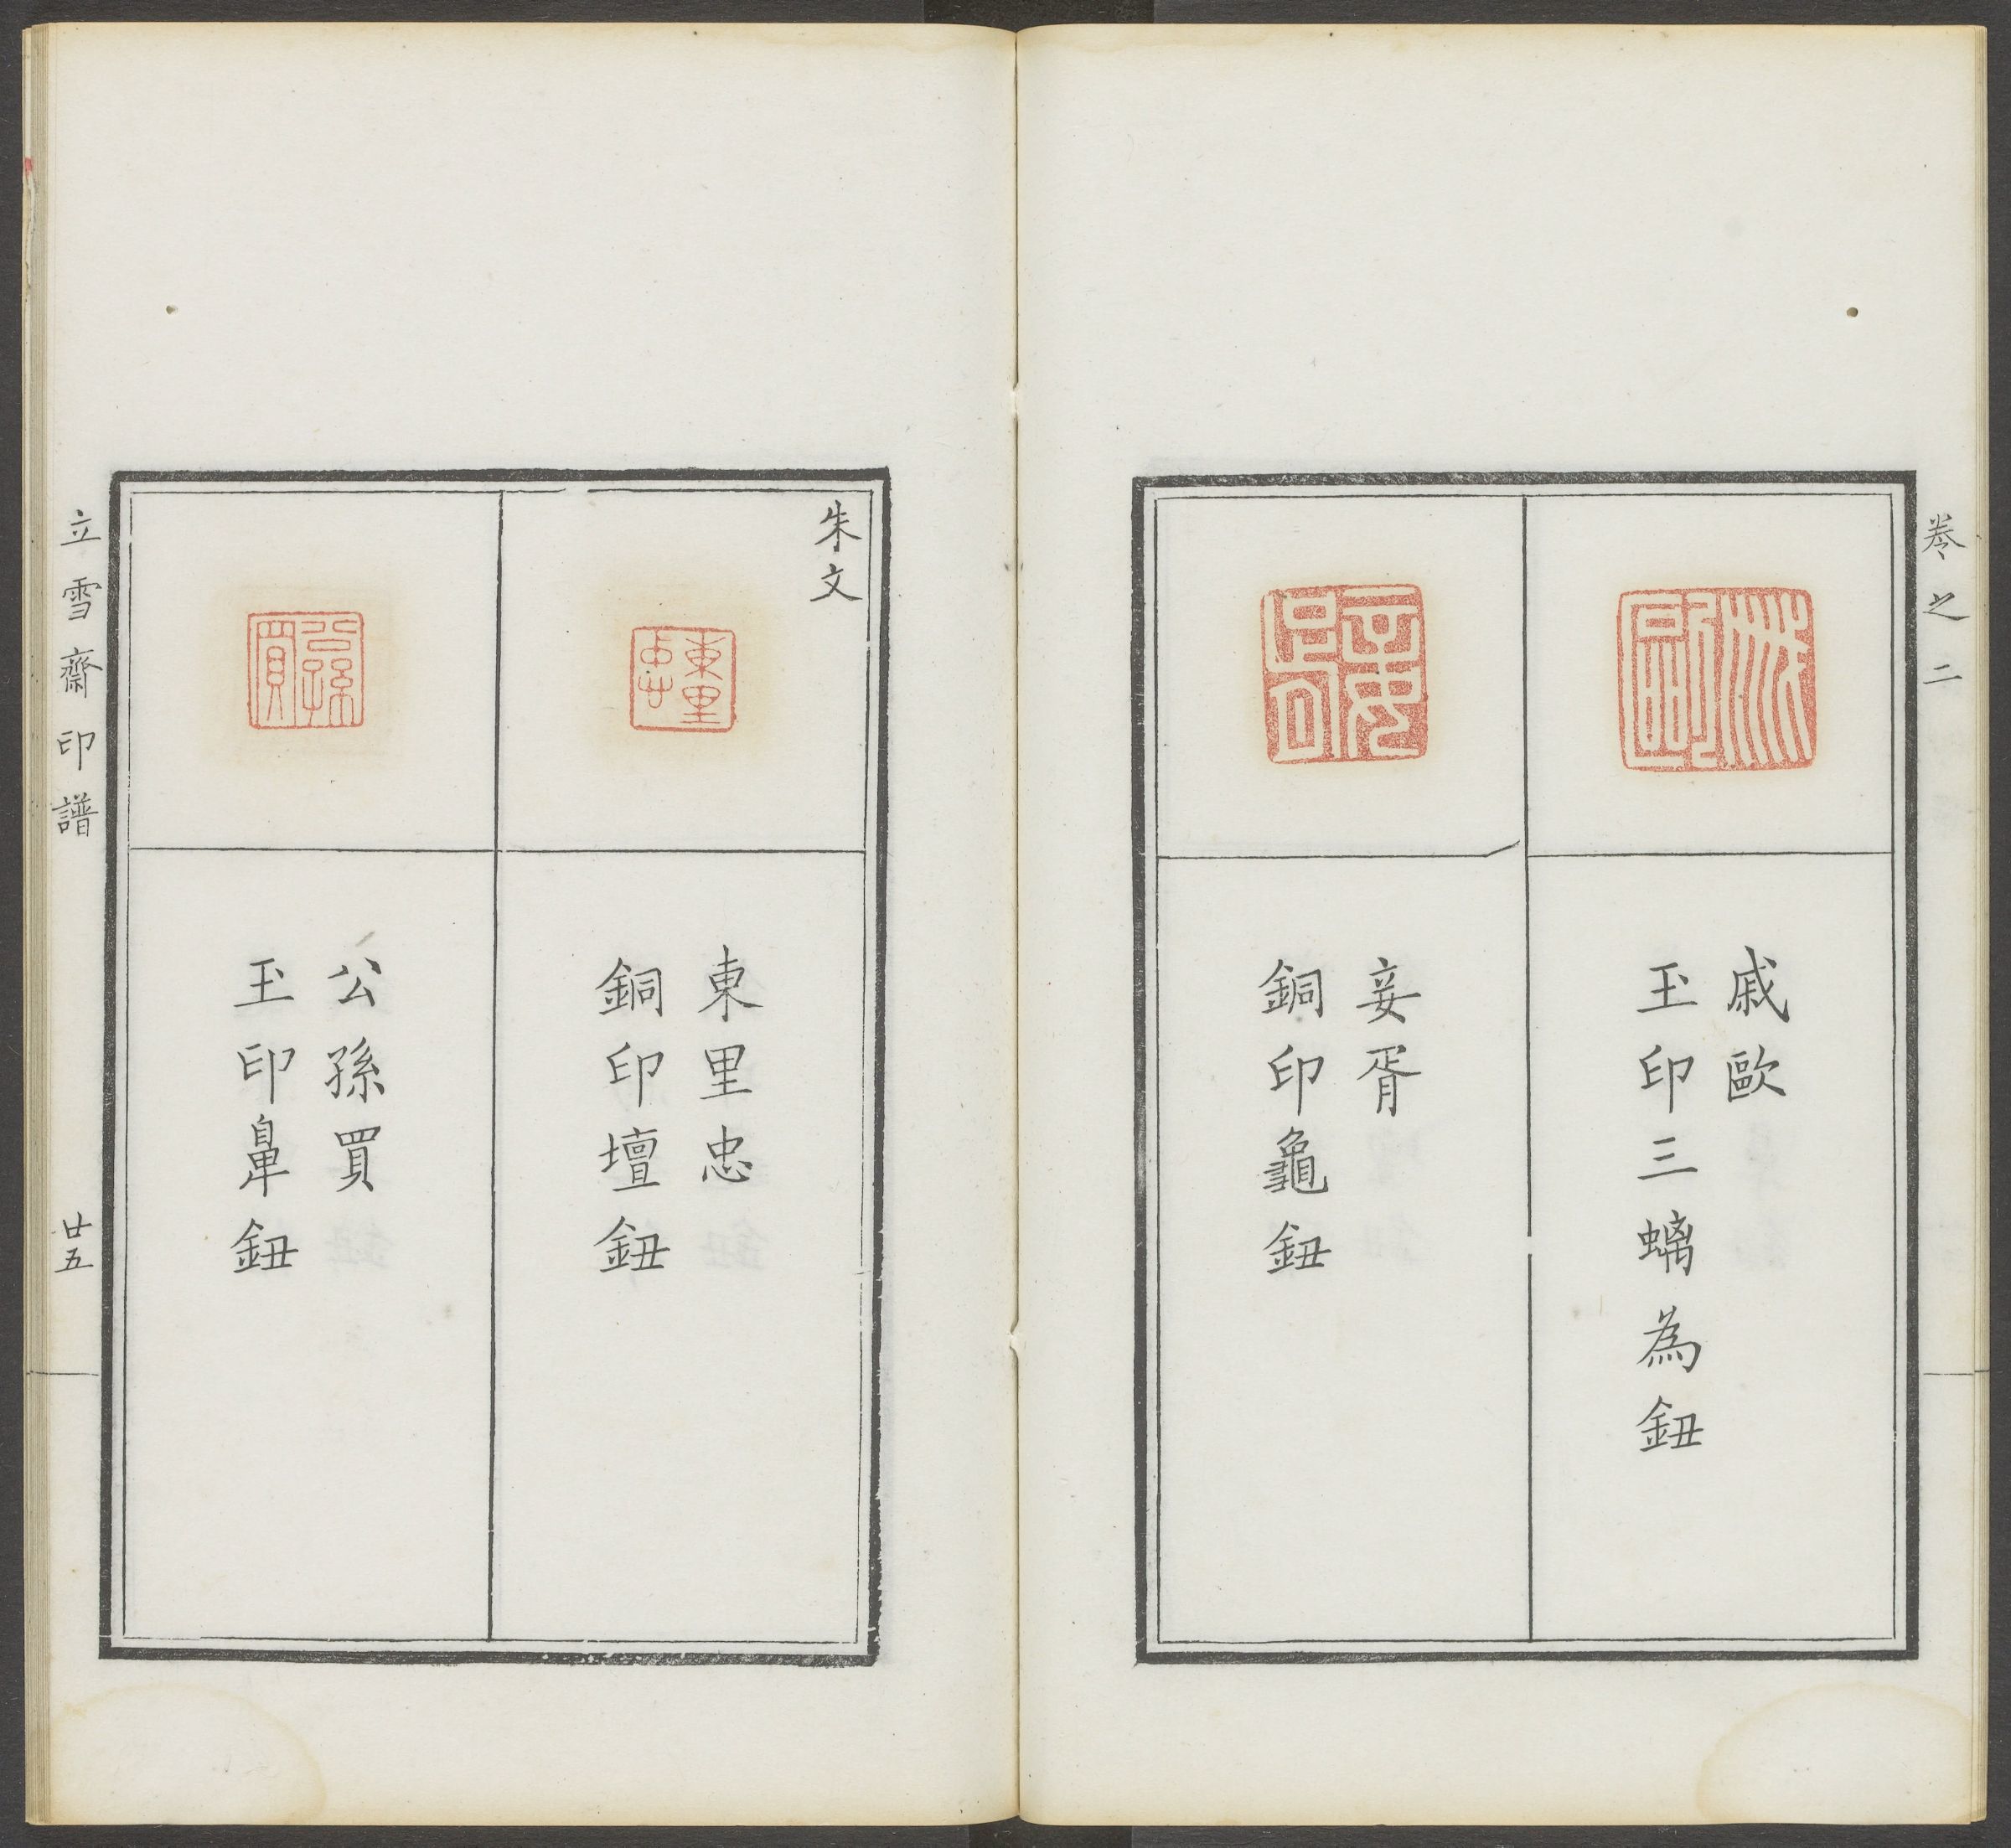 卷之二
戚歐
玉印三螭為鈕
妾胥
銅印龜鈕
朱文
東里忠
東里忠
銅印壇鈕
公孫買
公孫買
玉印鼻鈕
立雪齋印譜
廿五